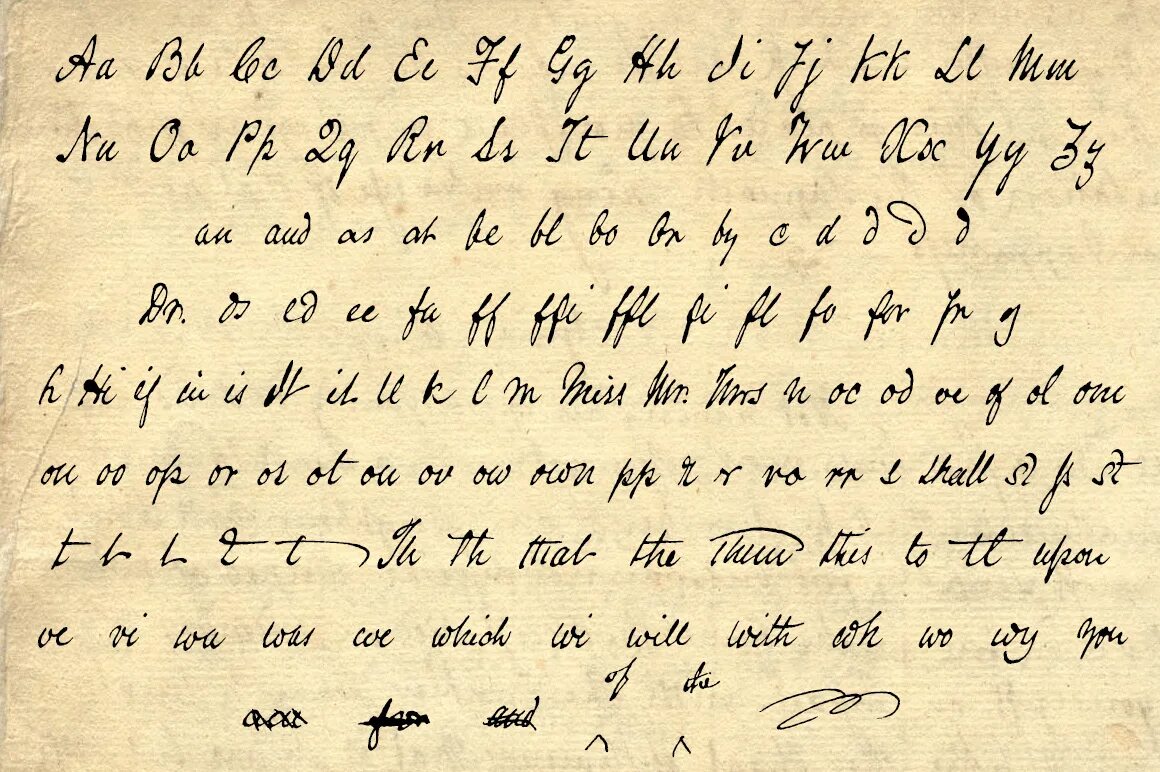 Aa Bb Cc Dd Ee Ff Gg Hh Ii Jj Kk Ll Mm
Nn Oo Pp Qq Rr Ss Tt Uu Vv Ww Xx Yy Zz
an and as at be bl bo br by c d d d d
Dr. ds ed ee fa ff ffi ffl fi fl fo for fr g
h Hi if in is It it ll k l m Miss Mr. Mrs n oc od oe of ol om
on oo op or os ot ou ov ow own pp r r ro rr s shall st ss st
t t t t t Th Th that the them this to tt upon
ve vi wa was we which wi will with wh wo wy you
of the
and